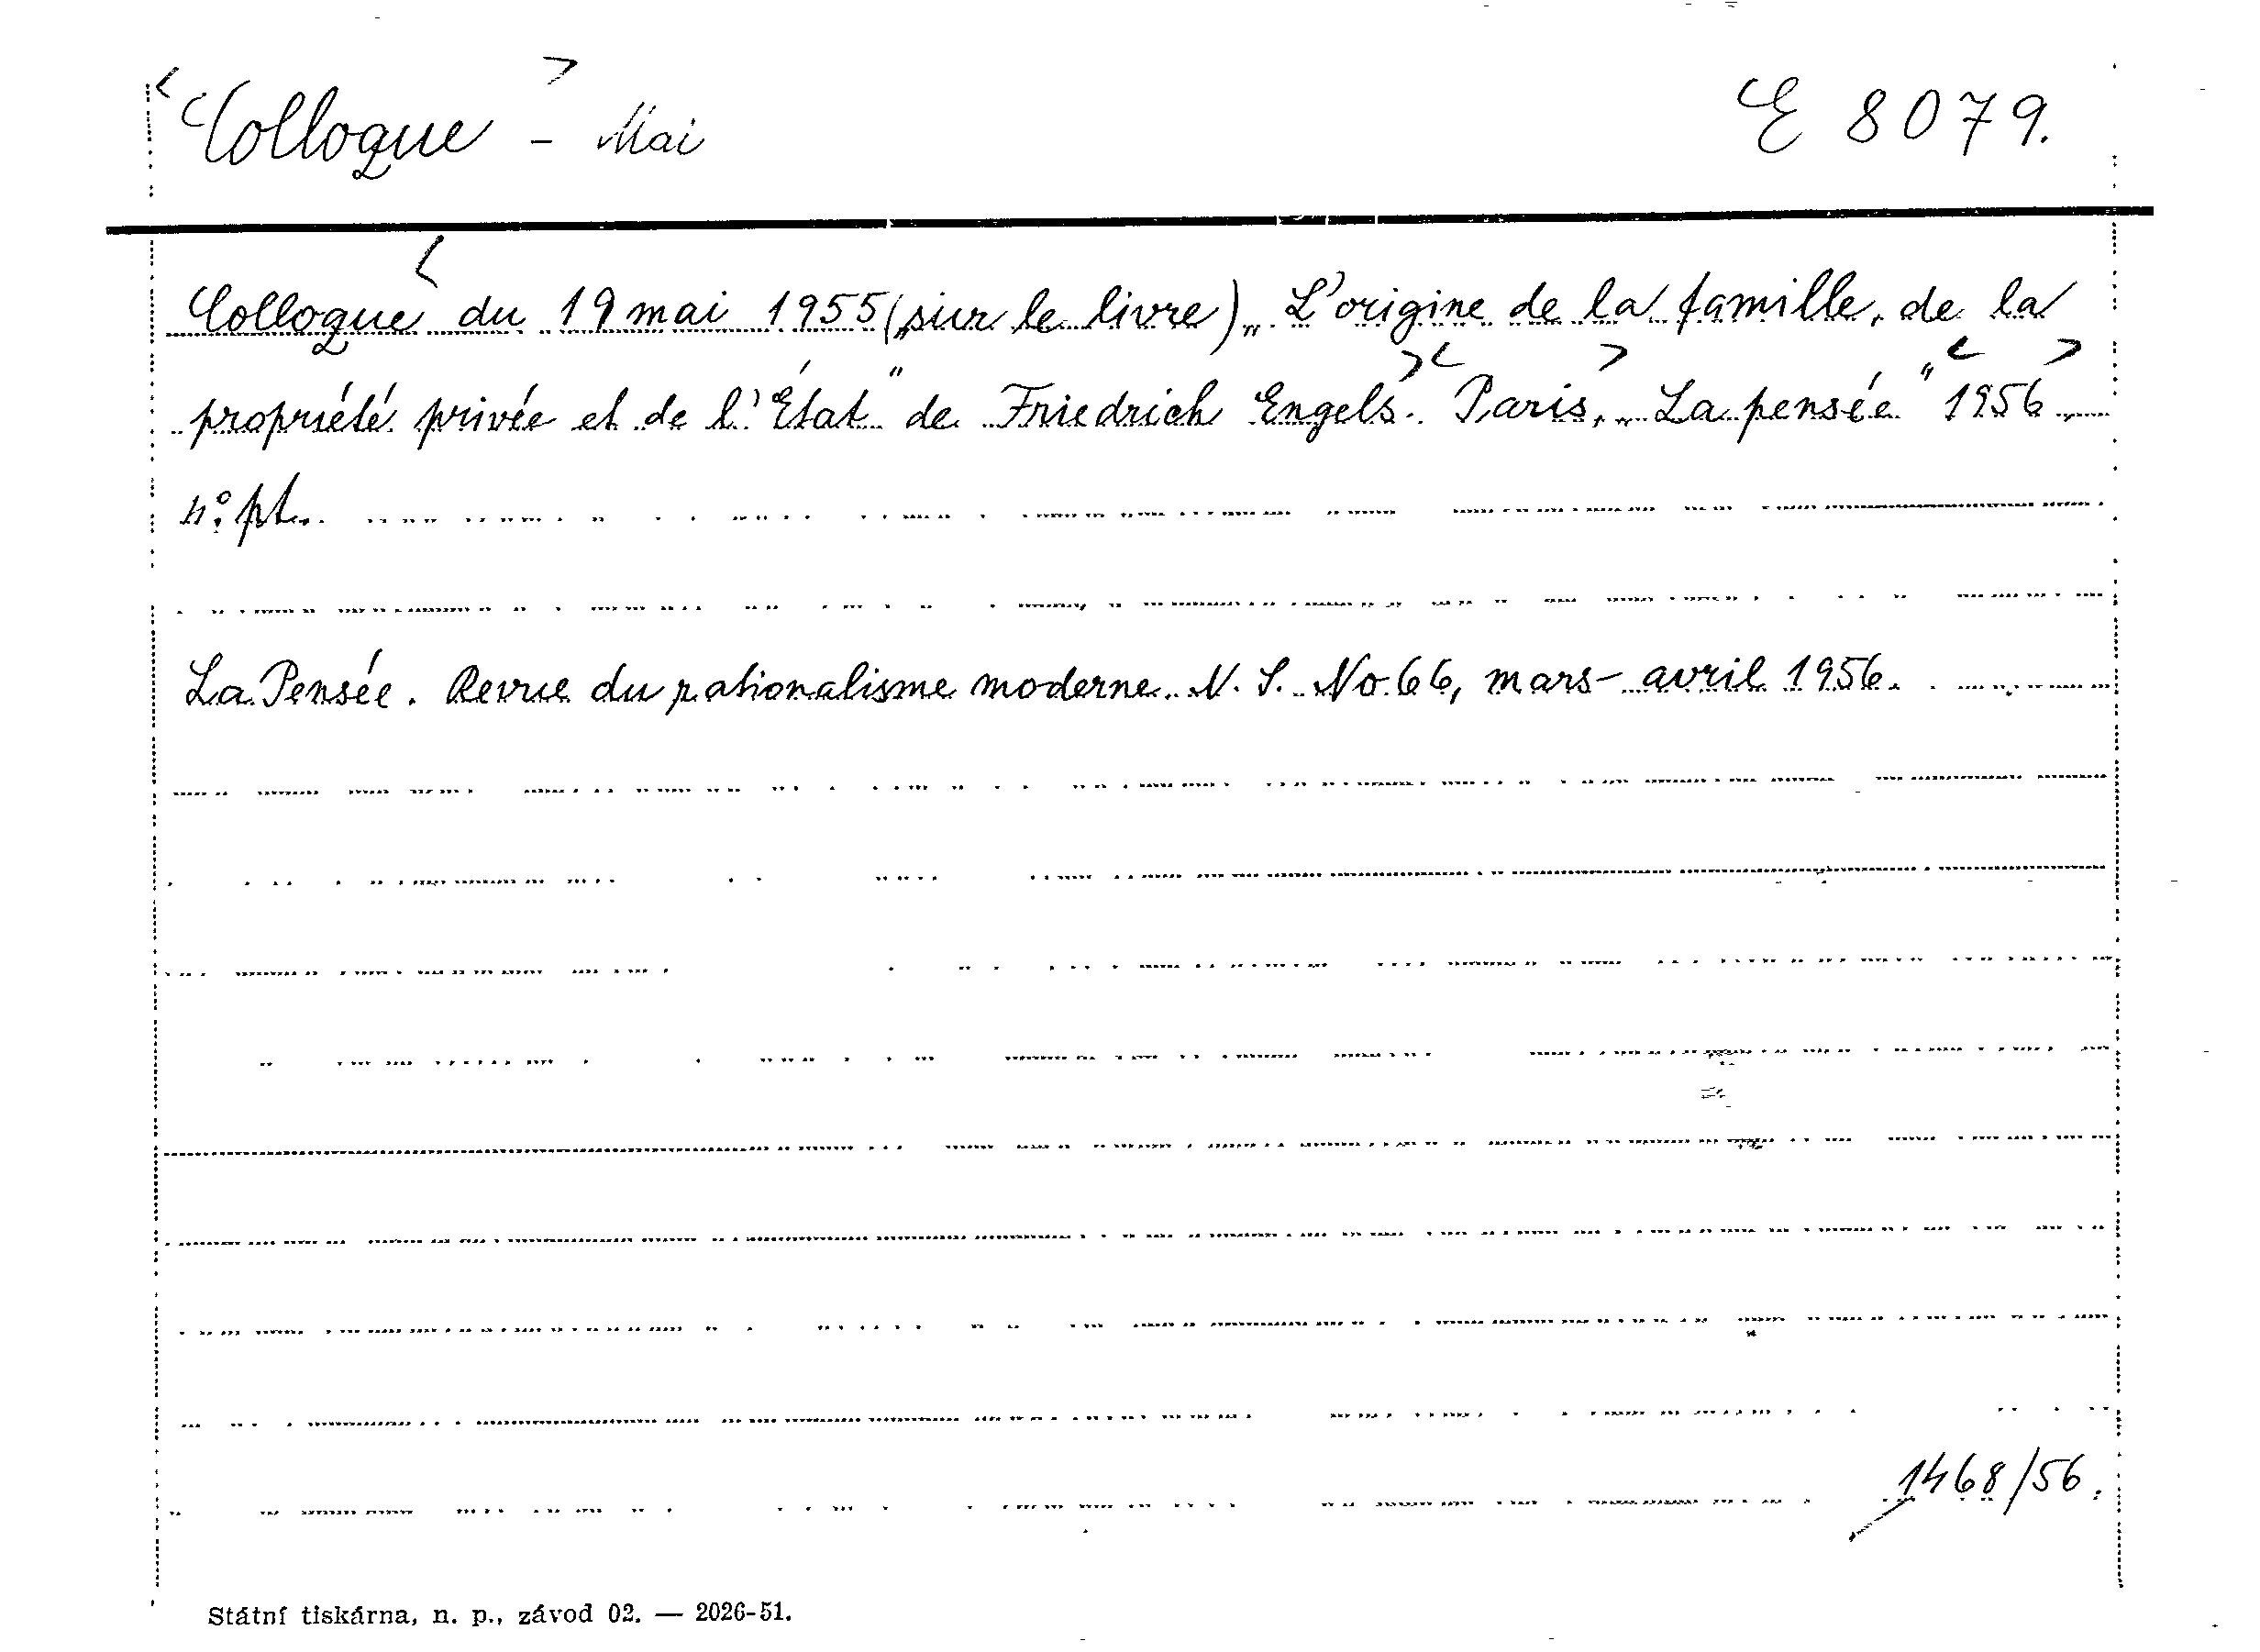 <Colloque> - Mai
E 8079.
Colloque< du 19 mai 1955 („sur le livre) „L'origine de la famille, de la
propriété privée et de l'État" de Friedrich Engels>. <Paris>, „La pensée" <1956>,
4°. pt.
La Pensée. Revue du rationalisme moderne. N. S. No 66, mars - avril 1956.
1468/56.
Státní tiskárna, n. p., závod 02. — 2026-51.